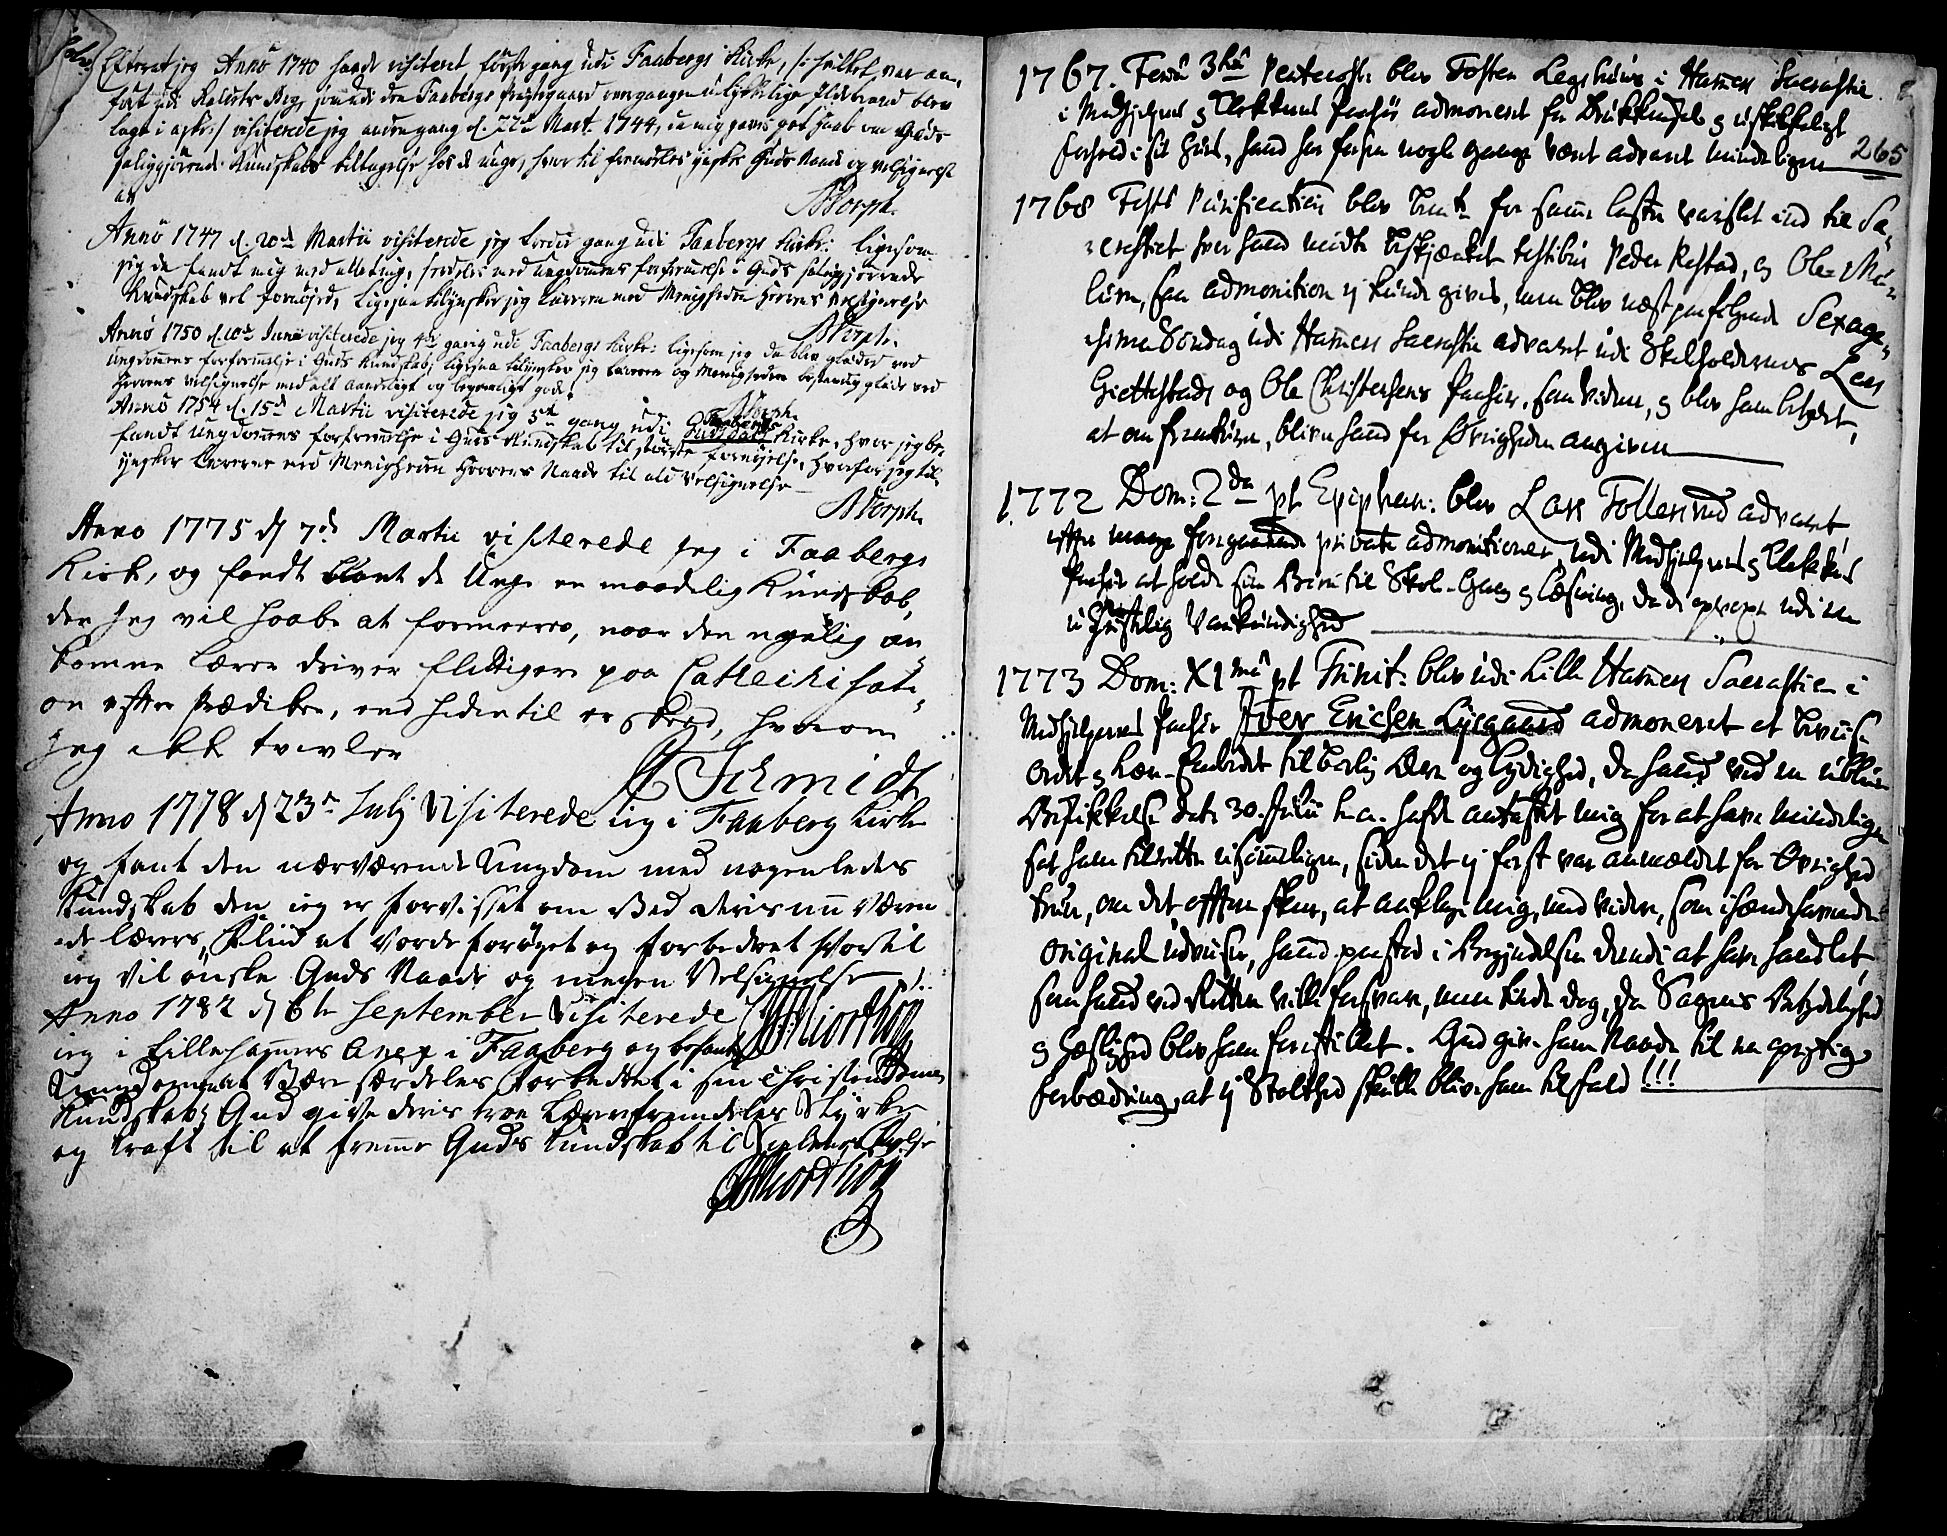 Efterat jeg Annô 1740 hafde visiteret første gang udi Faabergs Kirke, /: hvilket var an„
ført udi Kaldets Bog, som udi den Faabergs Præstegaard overgangne ulykkelige Ildebrand blev
lagt i aske :/ visiterede jeg anden gang d. 22de Mart. 1744, da mig gaves got Haab om Guds
saliggiørende Kundskabs tiltagelse hos de unge, hvor til fremdeles ynskes Guds Naade og velsignelse
NDorph.
Annô 1747 d. 20de Martii visiterede jeg tredie gang udi Faabergs Kirke: ligesom
jeg da fandt mig med alleting, særdeles med Ungdommens forfremelse i Guds saliggjørende
Kundskab vel fornøjed, ligesaa tilynsker jeg Læreren med Menigheden Herrens velsignelse
NDorph.
Annô 1750 d. 10de Junii visiterede jeg 4de gang udi Faabergs Kirke: ligesom jeg da blev glædet ved
Ungdommens forfremmelse i Guds Kundskab, ligesaa tilynsker jeg Læreren og Menigheden bestandig glæde ved
Herrens velsignelse med alt aandeligt og legemligt gode.
NDorph.
Annô 1754 d. 15de Martii visiterede jeg 5te gang udi Faabergs Kirke, hvor jeg be„
fandt Ungdommens forfremmelse i Guds Kundskab til største fornøjelse, hvorfor jeg til„
ynsker Læreren med Menigheden Herrens Naade til ald velsignelse
NDorph.
Anno 1775 d 7d Martii visiterede jeg i Faabergs
Kirke, og fandt blant de Unge en maadelig Kundskab,
den jeg vil haabe at formeeres, naar den nyelig an„
komne Lærer driver flittigere paa Cathechisati„
on efter Prædiken, end hidentil er skeed, hvorom
jeg ikke tvivler
Schmidt
Anno 1778 d 23de Julj Visiterede ieg i Faaberg Kirke
og fant den nærværende Ungdom med nogenledes
Kundskab den ieg er forvisset om ved deris nu væren
de lærers Fliid at vorde forøget og forbedret hvortil
ieg vil ønske Guds Naade og megen Velsignelse
Hiorthøy
Anno 1782 d 6te September Visiterede
ieg i Lillehammers Anex i Faaberg og befandt
Ungdommen være særdeles forbedret i sin Christendoms
Kundskab; Gud give deris troe Lærer fremdeles Styrke
og Kraft til at fremme Guds Kundskab til Sielenes Frelse
Hiorthøy
1767. Feria 3tiâ Pentecostes blev Tosten Legehuus i Hamers Sacrastie
i Medhjelpernes og Klokkerens Paasiun admoneret for Drukkenskab og uskikkeligt
Forhold i sit Huus, hand har forhen nogle gange vært advaret mindeligen 265
1768 Festo Purificationis blev bem:te for samme laster vaislet ind til Sa„
crastiet hvor hand mødte beskjænket testibus Peder Restad, og Ole Mæ„
lum, saa admonition ej kunde gives, men blev næstpaafølgende Sexage„
sima Søndag udi Hamers Sacrastie advaret udi Skoleholdernes Lars
Giettestads og Ole Christensens Paasiun, saa viden, og blev ham betydet,
at om fremture, bliver hand for Øvrigheden angiven
1772 Dom: 2da pt Epiphan: blev Lars Follerud advaret
efter mange foregaaende private admonitioner, udi Medhjelpernes og Klokkerens
Paasiun at holde sine Børn til Skole-Gang og Læsning, da de opvoxe udi en
u Christelig Vankundighed
1773 Dom: XImâ pt Trinit: blev udi Lille Hamers Sacrastie i
Medhjelpernes Paasiun Iver Erichsen Lysgaard admoneret at beviise
Ordet og Lære-Embedet tilbørlig Ære og Lydighed, da hand ved en ublue
Beskikkelse dat: 30. Julii h.a. hafde antastet mig for at have mindeligen
sat ham tilrette usømmeligen, siden det ej først var anmældet for Øvrighed
, om det oftere skeer, at anklage mig, med videre, som ihændehavende
original udviser, hand paastod i Begyndelsen derudi at have handlet,
som hand ved Retten ville forsvare, men tiede dog, da Sagens Betydelighed
og Hæslighed blev ham forestillet. Gud give ham Naade til en opregtig
forbædring, at ej Stolthed skulle blive ham til fald !!!